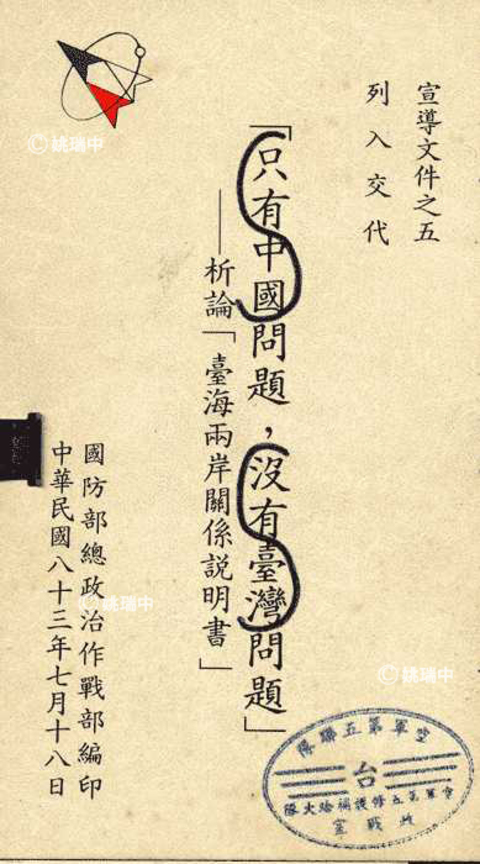 宣導文件之五
列入交代
「只有中國問題，沒有臺灣問題」
——析論「臺海兩岸關係説明書」
國防部總政治作戰部編印
中華民國八十三年七月十八日
空軍第五聯隊
台
空軍第五修護補給大隊
政戰室
© 姚瑞中
© 姚瑞中
© 姚瑞中